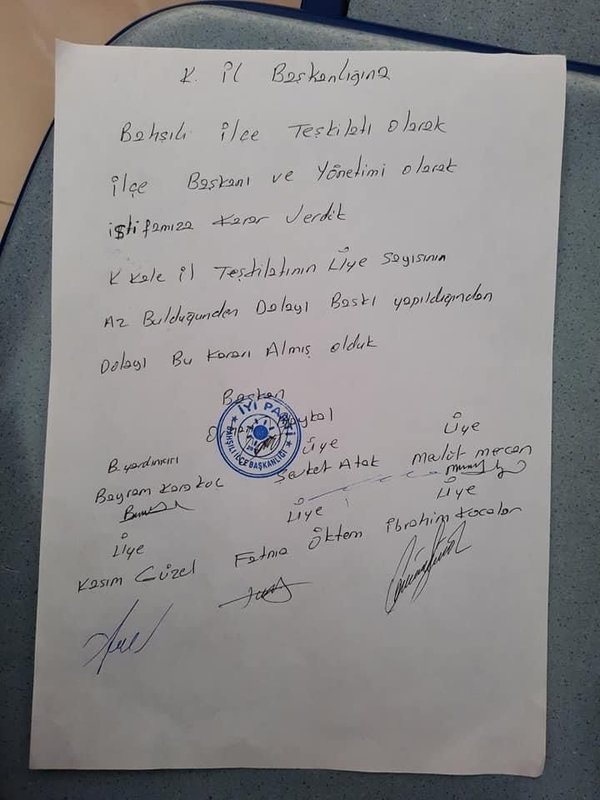 K. İl Başkanlığına
Bahşılı ilçe Teşkilatı olarak
İlçe Başkanı ve Yönetimi olarak
istifamıza Karar Verdik
K Kale il Teşkilatının Üye sayısının
Az Bulduğunden Dolayı Baskı yapıldığından
Dolayı Bu Kararı Almış olduk
Başkan
İYİ PARTİ
BAHŞILI İLÇE BAŞKANLIĞI
B. yardımcısı
Bayram Karakoç
Üye
Sevket Atak
Üye
Malüt mercan
Üye
Kasım Güzel
Üye
Fatma Öktem
Üye
İbrahim Kocalar